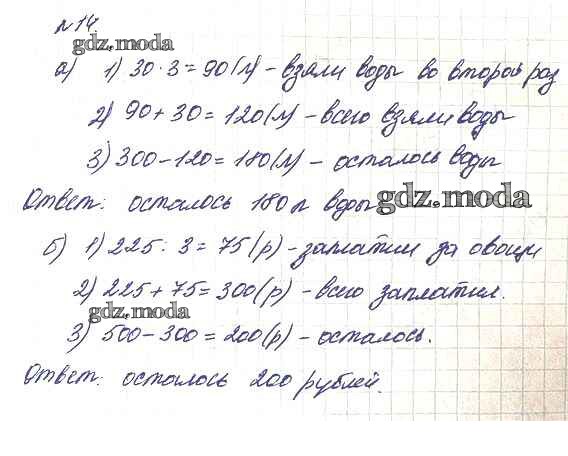 № 14
gdz.moda
а) 1) 30 · 3 = 90 (л) - взяли воды во второй раз
2) 90 + 30 = 120 (л) - всего взяли воды
3) 300 - 120 = 180 (л) - осталось воды
Ответ: осталось 180 л воды
gdz.moda
б) 1) 225 : 3 = 75 (р) - заплатил за овощи
2) 225 + 75 = 300 (р) - всего заплатил.
gdz.moda
3) 500 - 300 = 200 (р) - осталось.
Ответ: осталось 200 рублей.